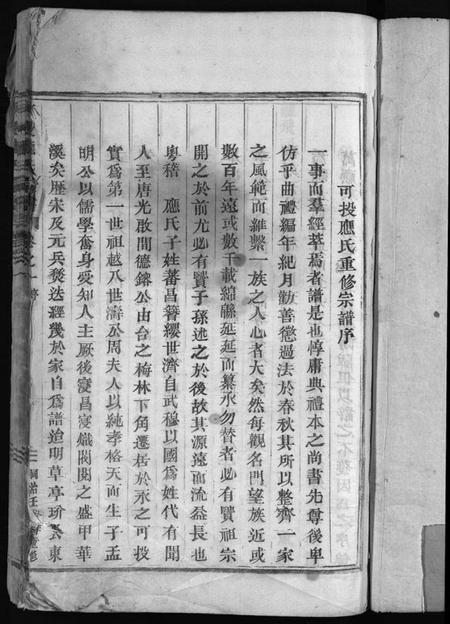 可投應氏重修宗譜序
一事而羣經萃焉者譜是也惇庸典禮本之尚書先尊後卑
仿乎曲禮編年紀月勸善懲過法於春秋其所以整齊一家
之風範而維繫一族之人心者大矣然每觀名門望族近或
數百年遠或數千載綿緜延延而纂承勿替者必有賢祖宗
開之於前尤必有賢子孫述之於後故其源遠而流益長也
粵稽應氏子姓蕃昌簪纓世濟自武穆以國爲姓代有聞
人至唐光啟間德鎔公由台之梅林下角遷居於永之可投
實爲第一世祖越八世濤公周夫人以純孝格天而生子孟
明公以儒學奮身受知人主厥後寖昌寖熾閥閱之盛甲華
溪矣歷宋及元兵燹迭經幾於家自爲譜迨明草亭玠長東
同治壬